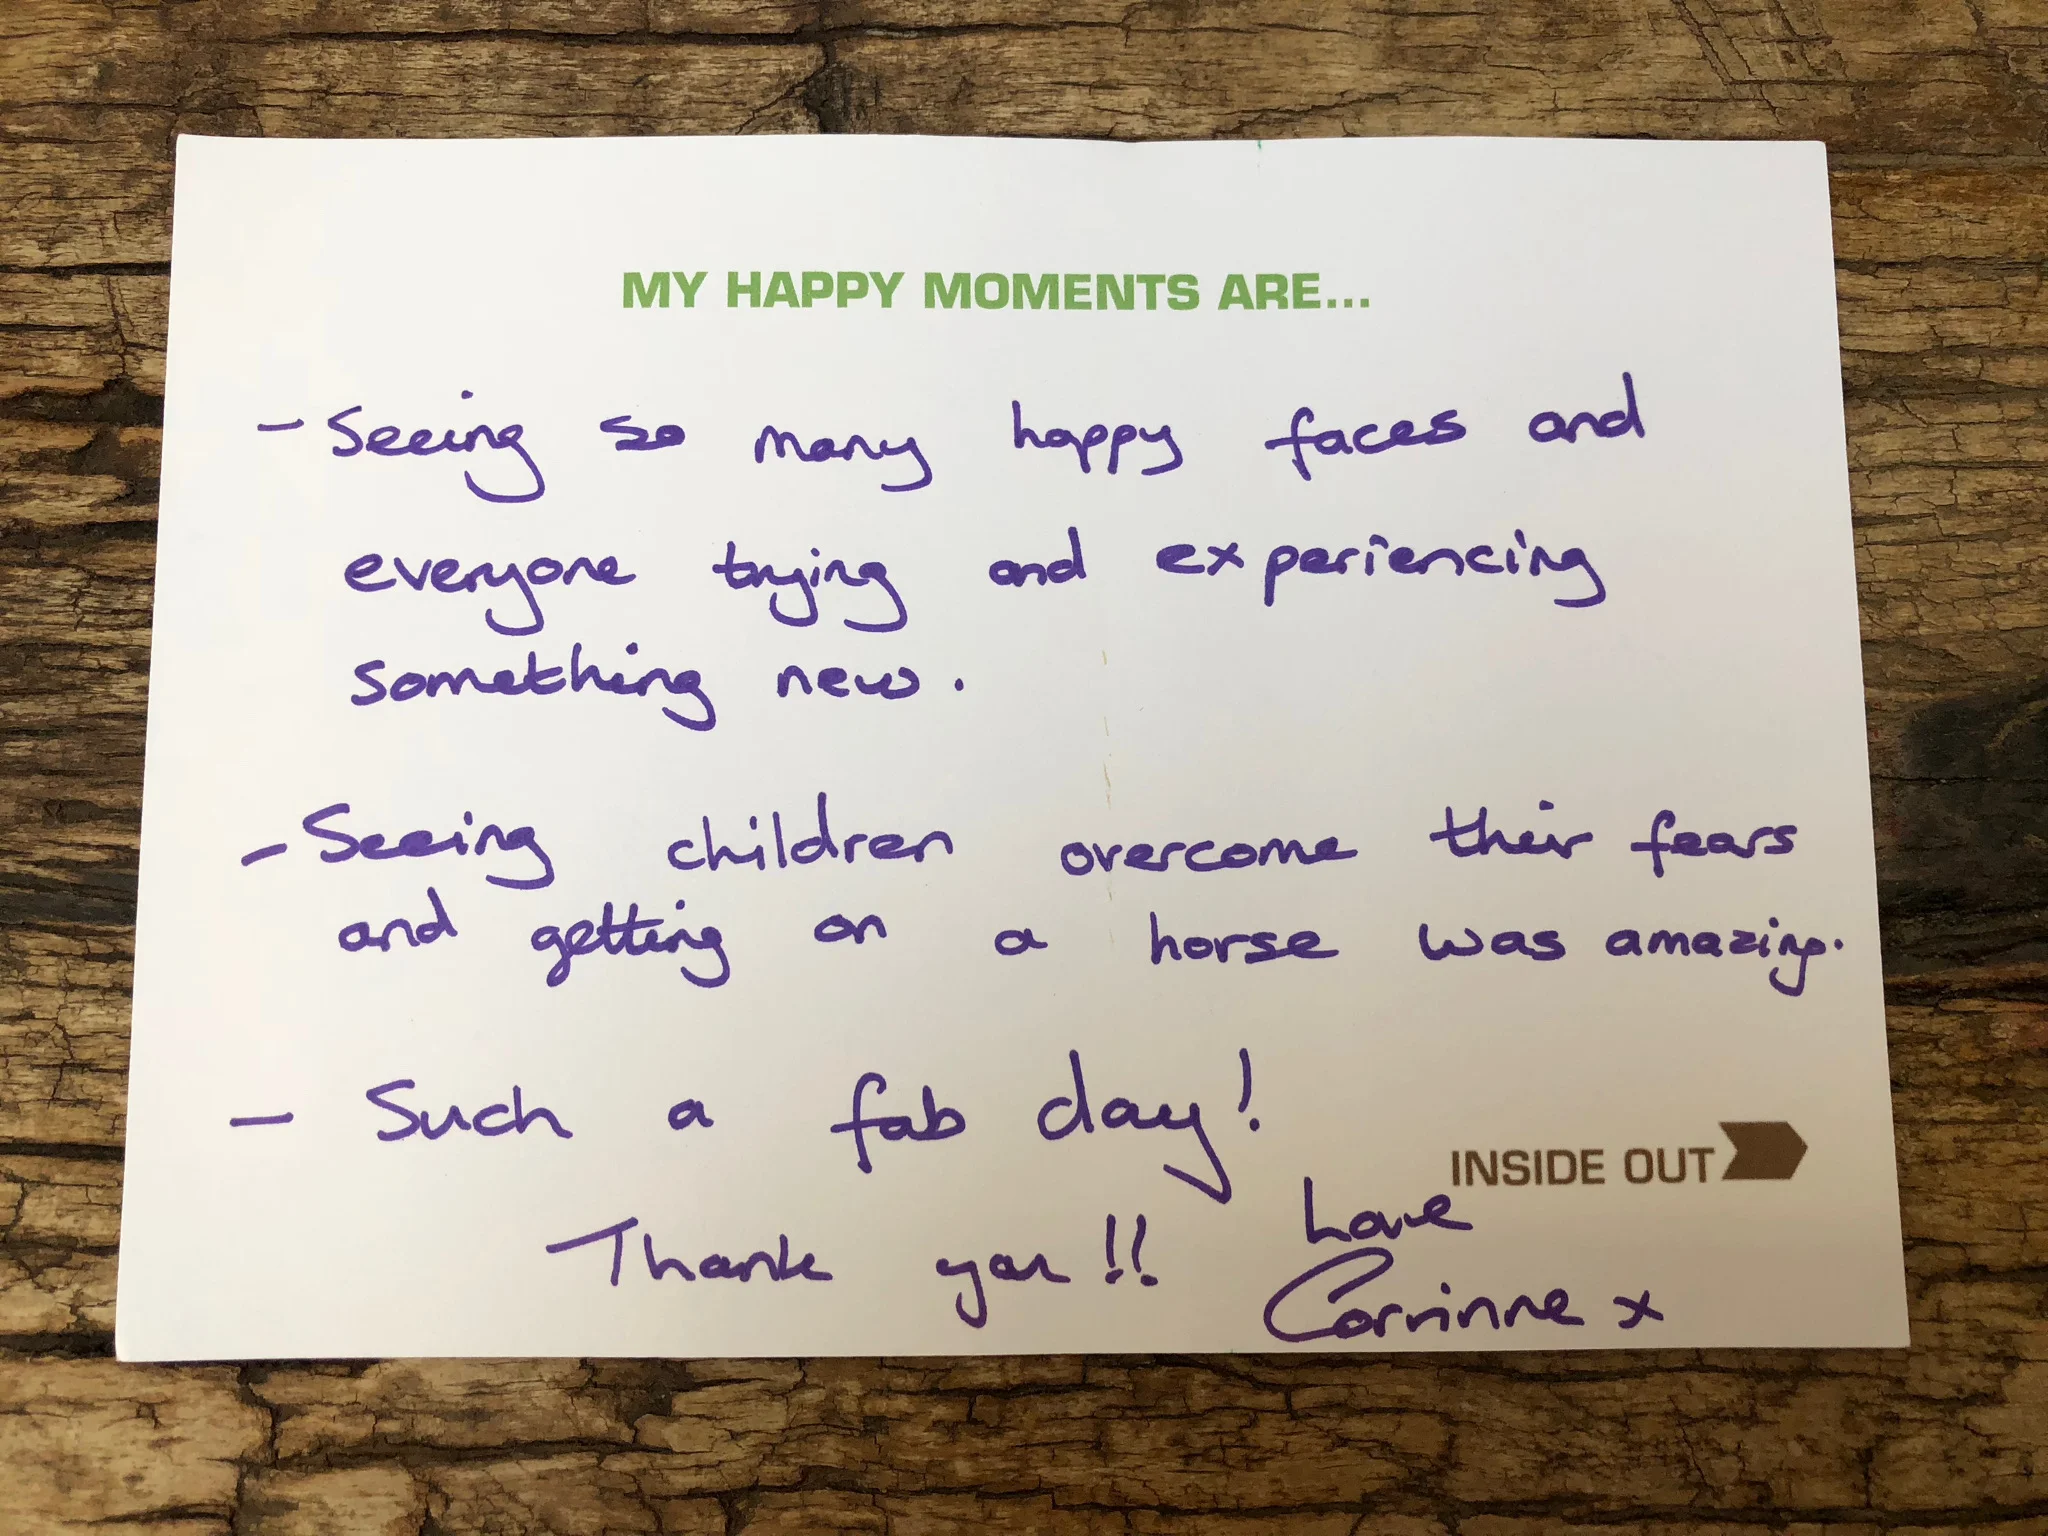 MY HAPPY MOMENTS ARE...
- Seeing so many happy faces and
everyone trying and experiencing
something new.
- Seeing children overcome their fears
and getting on a horse was amazing.
- Such a fab day!
INSIDE OUT
Thank you!!
Love
Corrinne x